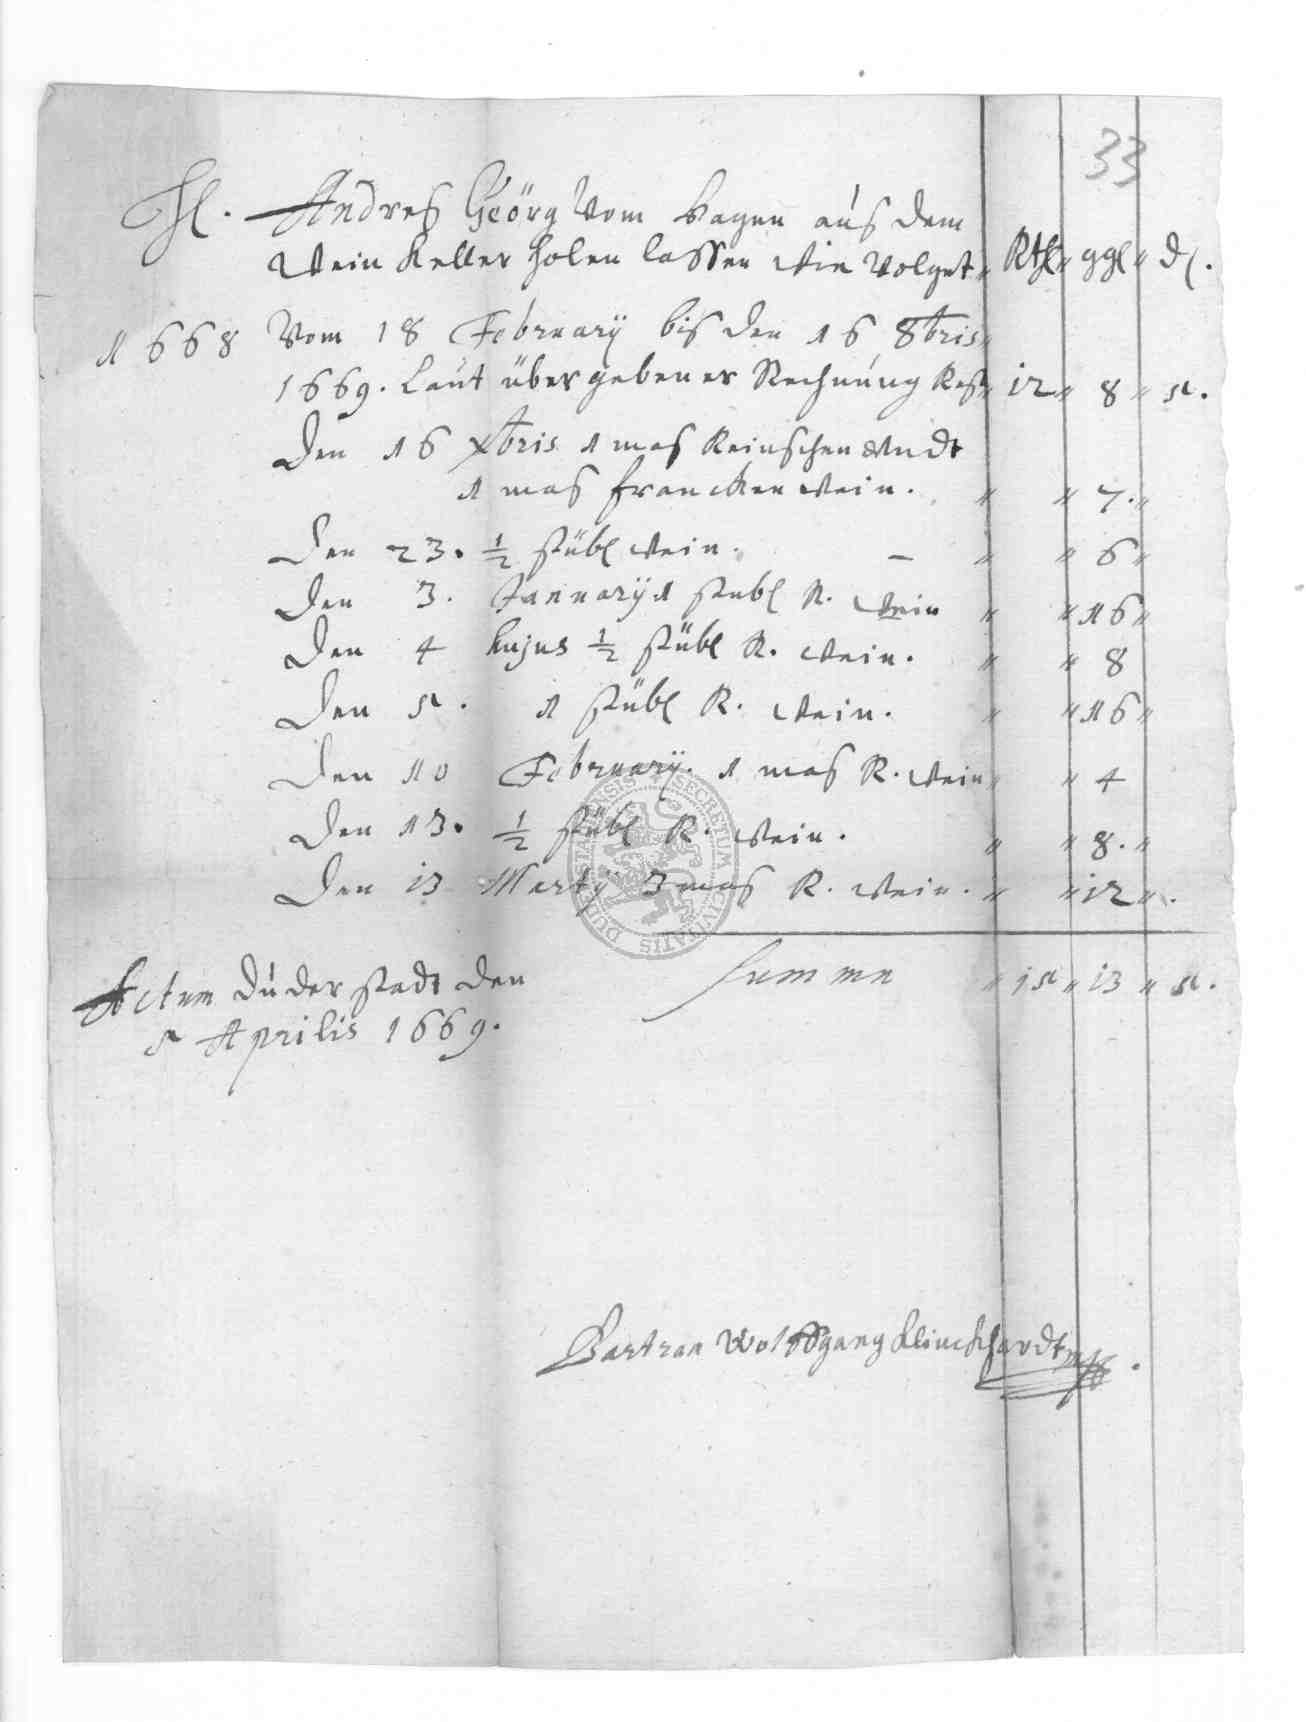 33
H. Andres Geörg Vom Hagen aus dem
Wein Keller holen lassen wie Volget „ Rthl „ ggl „ d.
1668 Vom 18 February bis den 16 8bris „
1669. Laut übergebener Rechnung Rest „ 12 „ 8 „ 5.
Den 16 xbris 1 mas Reinschen Undt
1 mas francken wein. „ „ 7. „
Den 23. ½ stübl wein. – „ „ 6 „
Den 3. January 1 stubl R. Wein „ „ 16 „
Den 4 hujus ½ stübl R. wein. „ „ 8
Den 5. 1 stübl R. wein. „ „ 16 „
Den 10 February. 1 mas R. wein „ „ 4
Den 13. ½ stübl R. wein. „ „ 8. „
Den 13 Marty 3 mas R. wein. „ „ 12 „.
Summa „ 15 „ 13 „ 5.
Actum Duderstadt den
5 Aprilis 1669.
Bartran Wolffgang Klinckhardt mpp.
SECRETUM CIVITATIS DUDERSTADENSIS